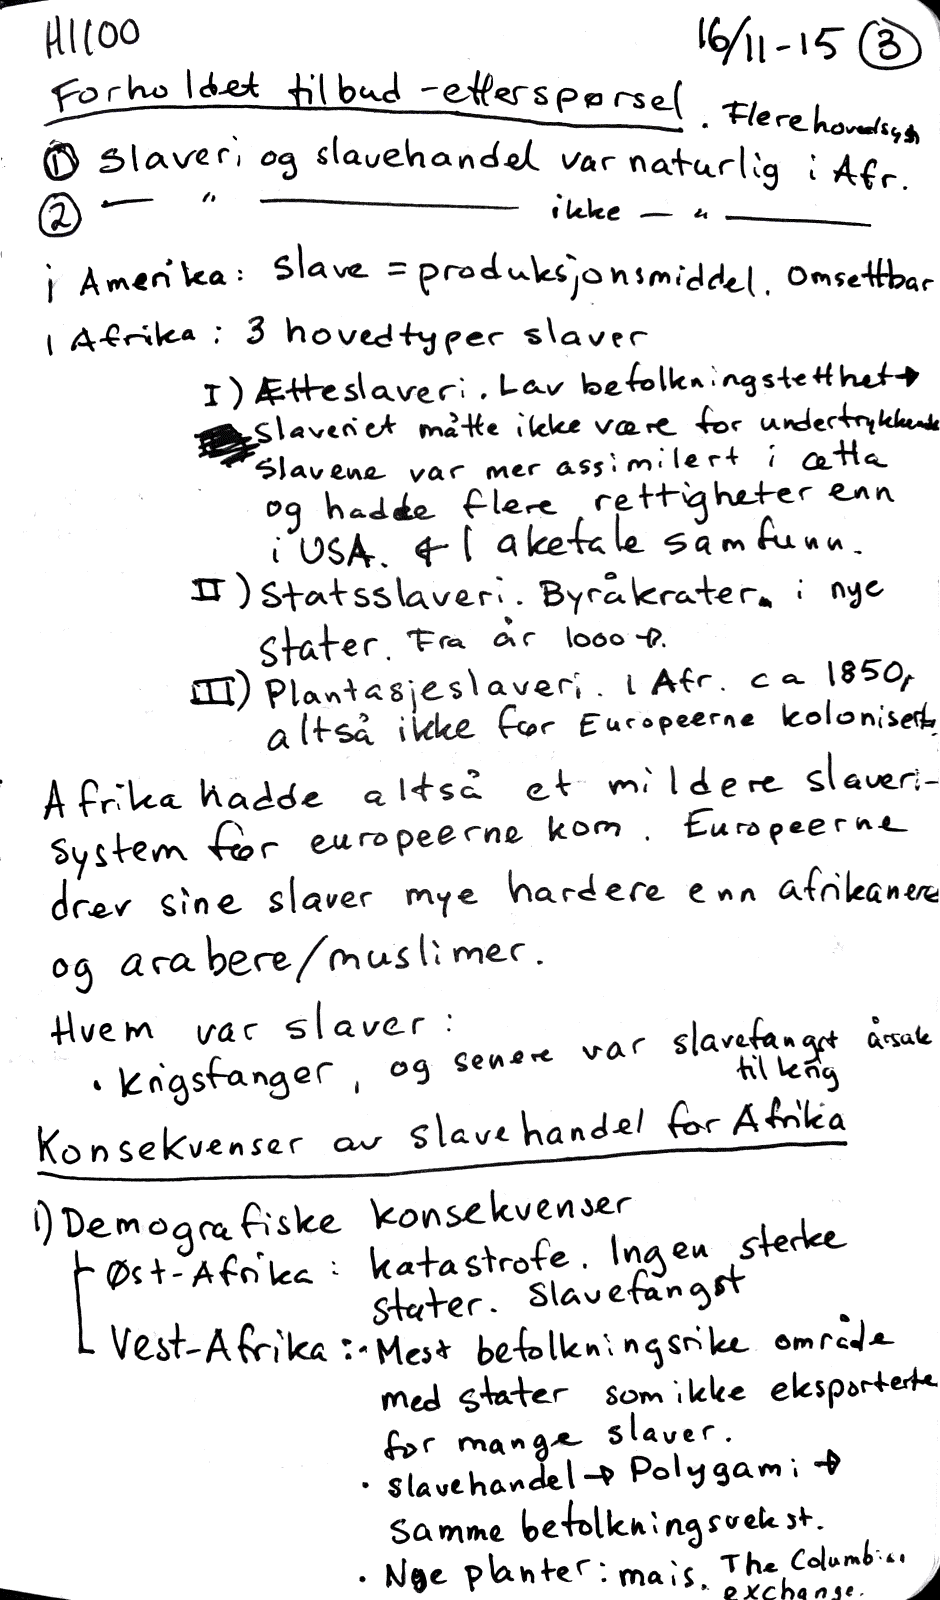 HI100
16/11-15 ③
Forholdet tilbud-etterspørsel. Flere hovedsyn
① Slaveri og slavehandel var naturlig i Afr.
② — " — ikke — " —
i Amerika: Slave = produksjonsmiddel. Omsettbar
I Afrika: 3 hovedtyper slaver
I) Ætteslaveri. Lav befolkningstetthet →
Slaveriet måtte ikke være for undertrykkende
Slavene var mer assimilert i ætta
og hadde flere rettigheter enn
i USA. I aketale samfunn.
II) Statsslaveri. Byråkrater i nye
stater. Fra år 1000 →.
III) Plantasjeslaveri. I Afr. ca 1850,
altså ikke før Europeerne kolonisert.
Afrika hadde altså et mildere slaveri-
system før europeerne kom. Europeerne
drev sine slaver mye hardere enn afrikanere
og arabere/muslimer.
Hvem var slaver:
• Krigsfanger, og senere var slavefangst årsak
til krig
Konsekvenser av slavehandel for Afrika
1) Demografiske konsekvenser
Øst-Afrika: katastrofe. Ingen sterke
stater. Slavefangst
Vest-Afrika: • Mest befolkningsrike område
med stater som ikke eksporterte
for mange slaver.
• Slavehandel → Polygami →
samme befolkningsvekst.
• Nye planter: mais. The Columbian
exchange.